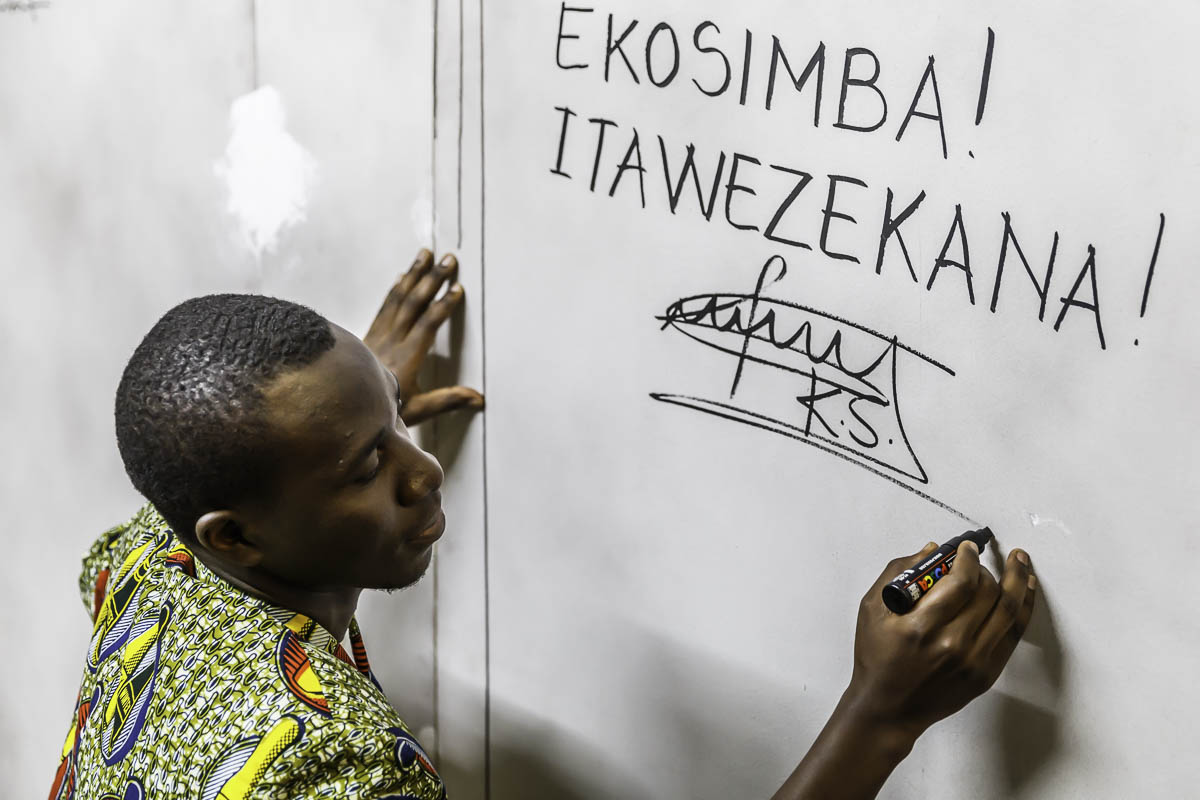 EKOSIMBA!
ITAWEZEKANA!
K.S.
POSCA